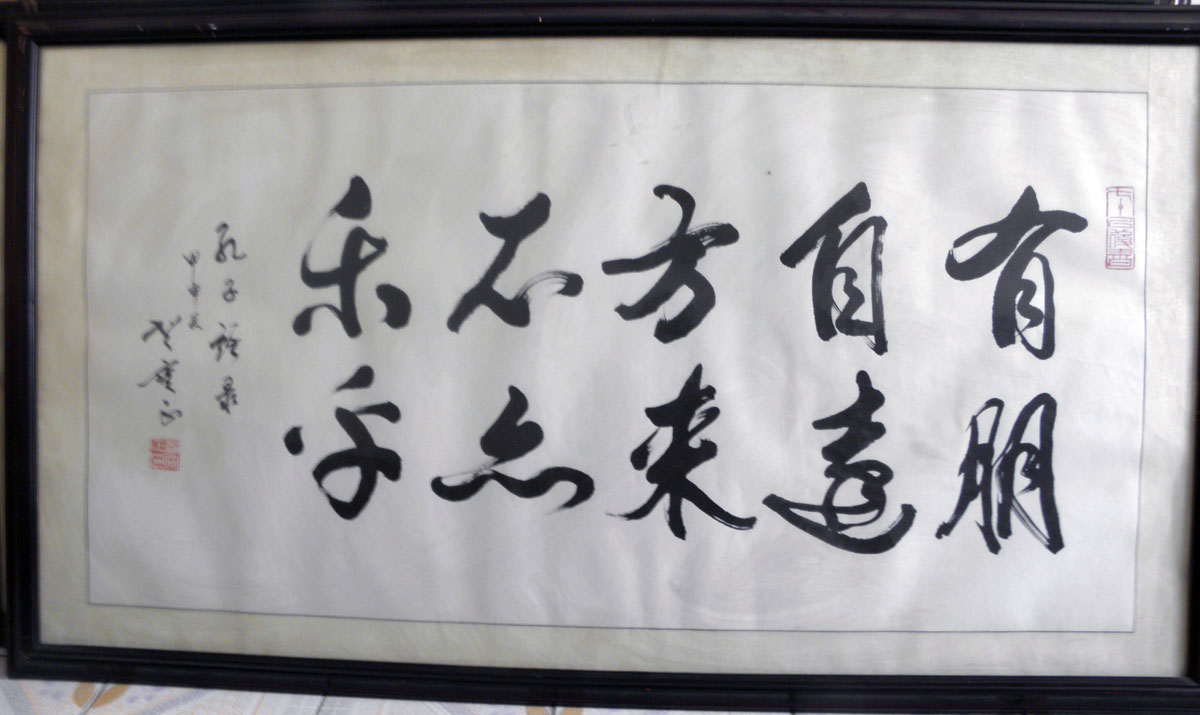 有朋
自遠
方來
不亦
樂乎
孔子語录
甲申夏